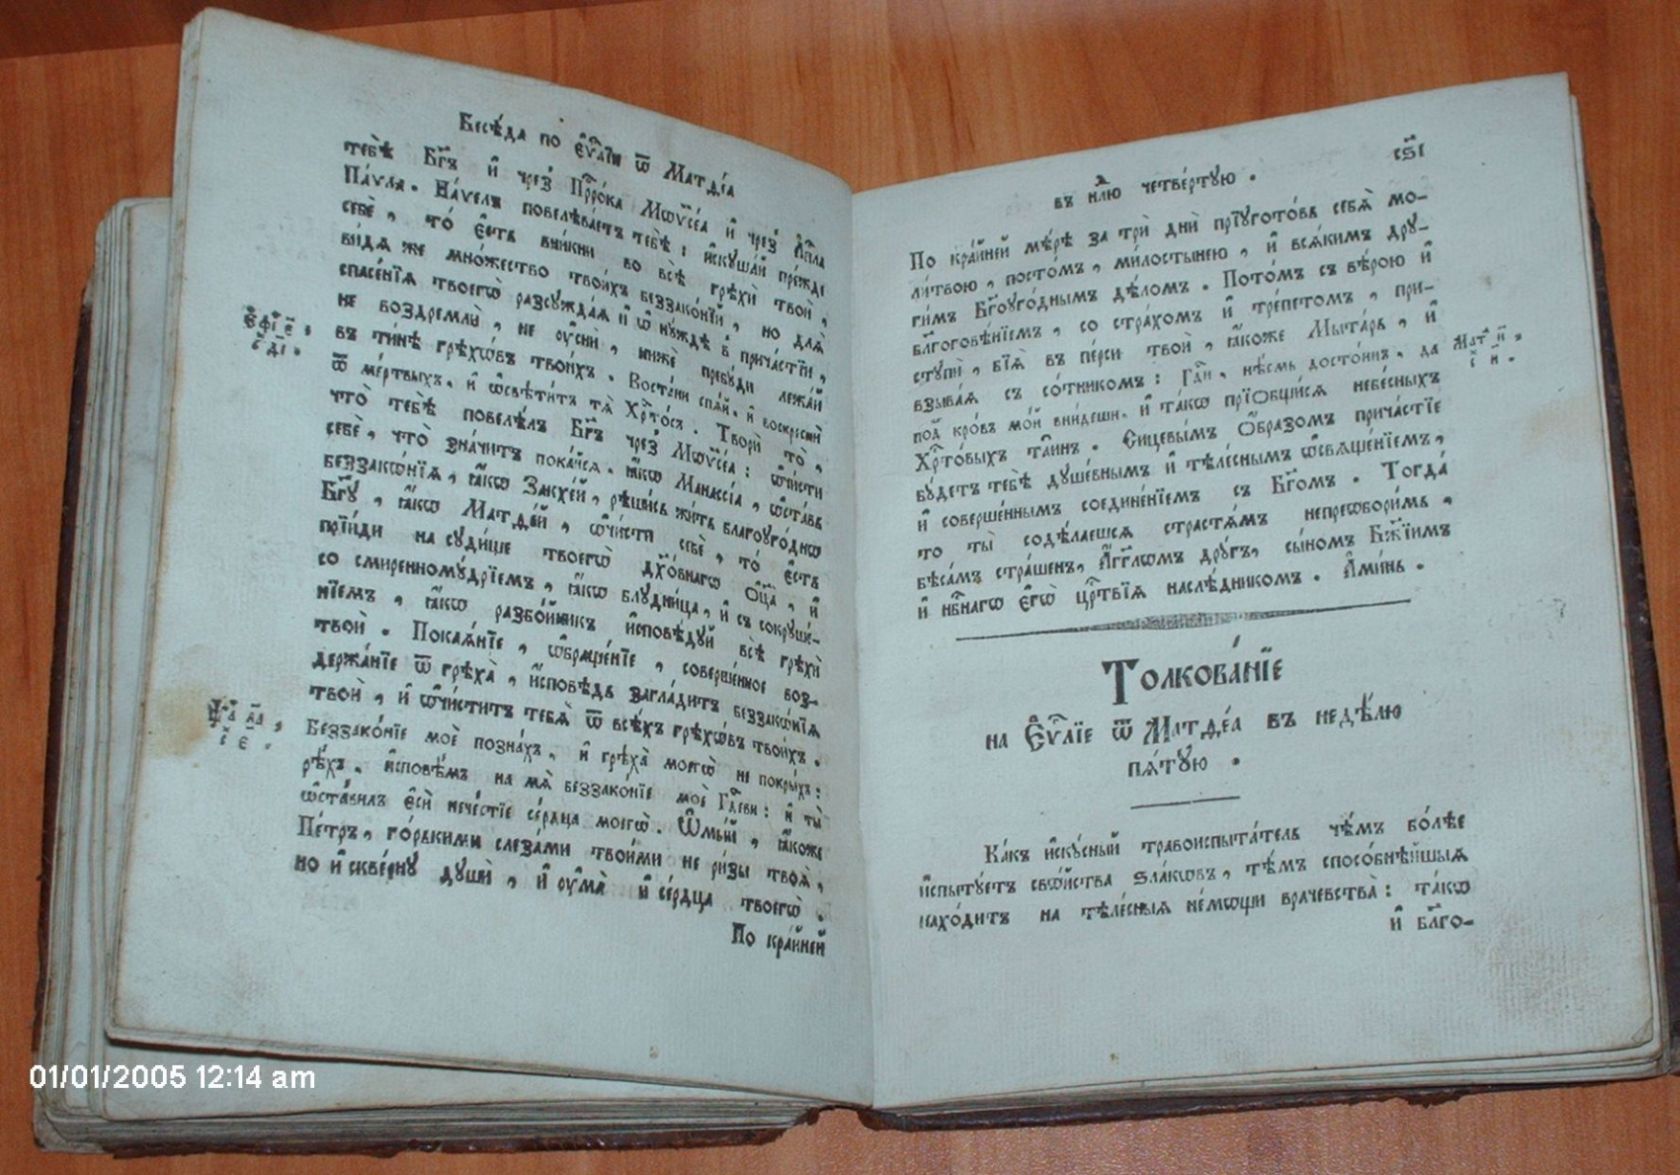 Бесѣ́да по Є҆ѵⷢ҇лїи ѿ Матѳе́а
тебѣ̀ Бг҃ъ и҆ чрез̾ Прⷪ҇ро́ка Мѡѷсе́а и҆ чрез̾ А҆пⷭ҇ла
Па́ѵла. Па́ѵелъ повелѣва́етъ тебѣ̀: и҆скꙋша́й пре́жде
себѐ, то́ є҆сть вни́кни во всѣ̀ грѣхѝ твоѝ,
ви́дѧ же мно́жество твои́хъ беззако́нїй, но длѧ̀
спасе́нїѧ твоегѡ̀ разсꙋжда́ѧ и҆ ѡ҆ нꙋ́ждѣ в̾ прича́стїи,
не воздремлѝ, не ᲂу҆снѝ, нижѐ пребꙋ́ди лежа́й
въ ти́нѣ грѣхѡ́въ твои́хъ. Воста́ни спѧ́й, и҆ воскреснѝ
ѿ ме́ртвыхъ, и҆ ѡ҆свѣти́тъ тѧ̀ Хрⷭ҇то́съ. Творѝ то̀,
что̀ тебѣ̀ повелѣ́лъ Бг҃ъ чрез̾ Мѡѷсе́а: ѡ҆чи́сти
себѐ, что̀ зна́читъ пока́йсѧ, ꙗ҆́кѡ Манассі́а, ѡ҆ста́въ
беззакѡ́нїѧ, ꙗ҆́кѡ Закхе́й, рѣши́сь жи́ть благоꙋго́днѡ
Бг҃ꙋ, ꙗ҆́кѡ Матѳе́й, ѡ҆чи́сти себѐ, то́ є҆сть
прїидѝ на сꙋди́ще твоегѡ̀ дꙋхо́внагѡ ѻ҆ц҃а̀, и҆
со смиренномꙋ́дрїемъ, ꙗ҆́кѡ блꙋдни́ца, и҆ съ сокрꙋше́-
нїемъ, ꙗ҆́кѡ разбо́йникъ и҆сповѣ́дꙋй всѣ̀ грѣхѝ
твоѝ. Покаѧ́нїе, ѡ҆браще́нїе, соверше́нное воз-
держа́нїе ѿ грѣха̀, и҆́сповѣдь загла́дитъ беззакѡ́нїѧ
твоѝ, и҆ ѡ҆чи́ститъ тебѧ̀ ѿ всѣ́хъ грѣхѡ́въ твои́хъ.
Беззако́нїе моѐ позна́хъ, и҆ грѣха̀ моегѡ̀ не покры́хъ:
рѣ́хъ, и҆сповѣ́мъ на мѧ̀ беззако́нїе моѐ Гдⷭ҇еви: и҆ ты̀
ѡ҆ста́вилъ є҆сѝ нече́стїе се́рдца моегѡ̀. Ѡ҆мы́й, ꙗ҆́коже
Пе́тръ, го́рькими слеза́ми твои́ми не ри́зы твоѧ̀,
но и҆ скве́рнꙋ дꙋшѝ, и҆ ᲂу҆ма̀ и҆ се́рдца твоегѡ̀.
По кра́йней
Є҆фⷭ҇ е҃,
с҃ д҃і.
Ѱⷭ҇л л҃а,
с҃ є҃.
с҃ѕі
въ нⷣлю четве́ртꙋю.
По кра́йней мѣ́рѣ за трѝ днѝ прїꙋгото́въ себѧ̀ мо-
ли́твою, посто́мъ, ми́лостынею, и҆ всѧ́кимъ дрꙋ-
ги́мъ Бг҃оꙋго́днымъ дѣ́ломъ. Пото́мъ съ вѣ́рою и҆
бл҃гоговѣ́нїемъ, со стра́хомъ и҆ тре́петомъ, при-
стꙋпѝ, бїѧ̀ въ пе́рси твоѝ, ꙗ҆́коже Мыта́рь, и҆
взыва́ѧ съ со́тникомъ: Гдⷭ҇и, нѣ́смь досто́инъ, да
под̾ кро́въ мо́й вни́деши, и҆ та́кѡ прїѻбщи́сѧ небе́сныхъ
Хрⷭ҇то́выхъ та̑инъ. Сицевы́мъ ѻ҆́бразомъ прича́стїе
бꙋ́детъ тебѣ̀ дꙋше́внымъ и҆ тѣле́снымъ ѡ҆свѧще́нїемъ,
и҆ соверше́ннымъ соедине́нїемъ съ Бг҃омъ. Тогда̀
то ты̀ содѣ́лаешсѧ страстѧ́мъ непреѡбори́мь,
бѣса́мъ стра́шенъ, А҆́гг҃лѡмъ дрꙋ́гъ, сы́номъ Бж҃їимъ
и҆ нбⷭ҇нагѡ є҆гѡ̀ црⷭ҇твїѧ наслѣ́дникомъ. А҆ми́нь.
Маⷮ и҃,
с҃ и҃.
Толкова́нїе
на Є҆ѵⷢ҇лїе ѿ Матѳе́а въ недѣ́лю
пѧ́тꙋю.
Ка́къ и҆скꙋ́сный травоиспыта́тель чѣ́мъ бо́лѣе
и҆спытꙋ́етъ свѡ́йства ѕла́кѡвъ, тѣ́мъ спосо́бнѣйшыѧ
нахо́дитъ на тѣле́сныѧ не́мѡщи враче́вства̀: та́кѡ
и҆ бл҃го-
01/01/2005 12:14 am